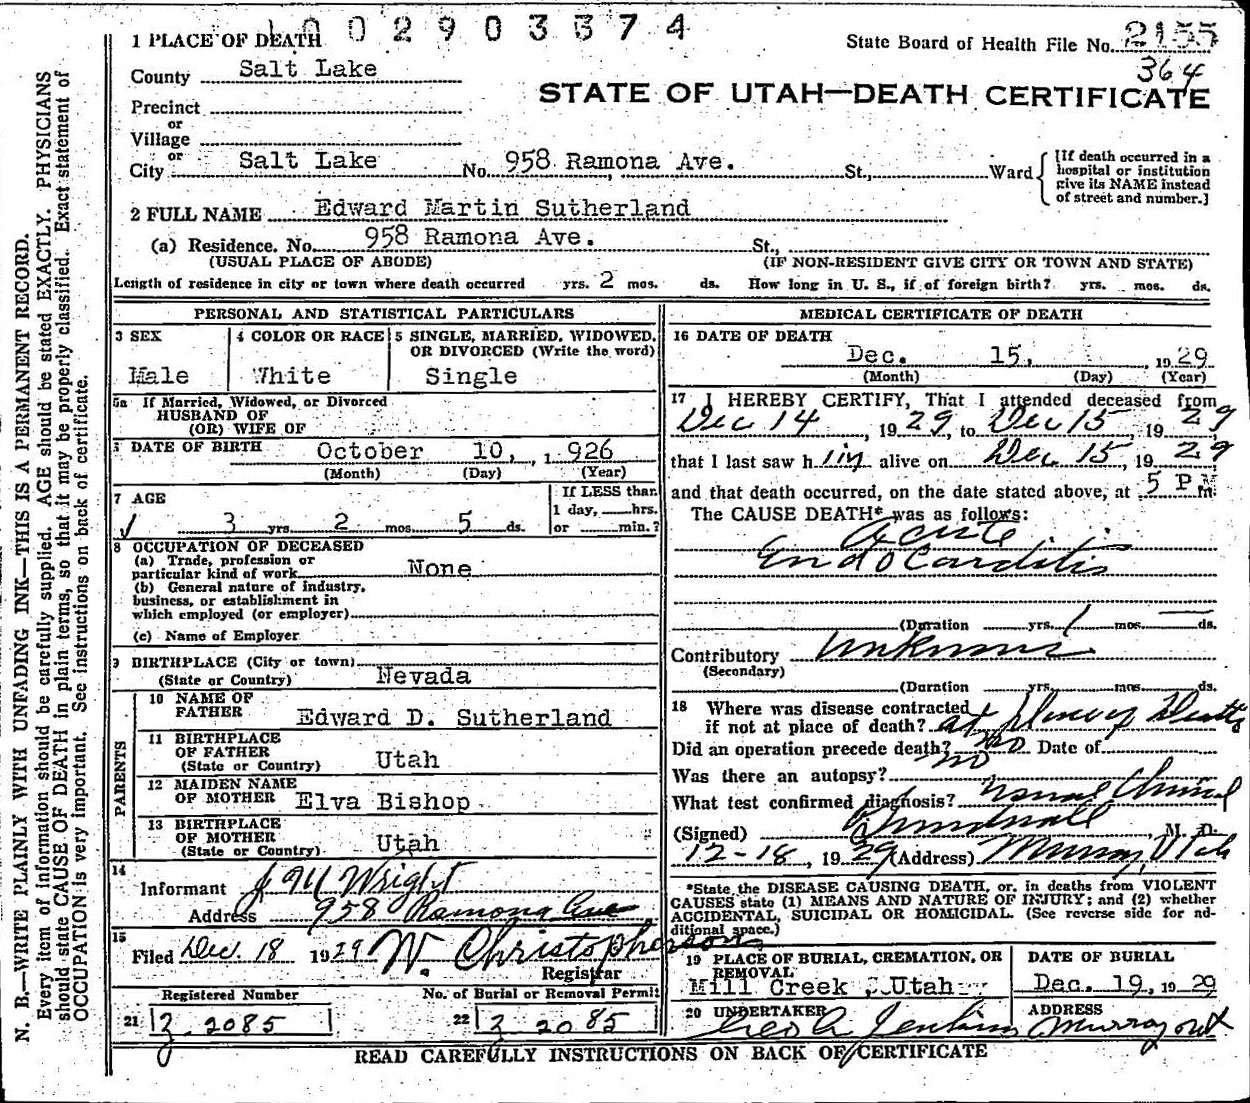 1 0 0 2 9 0 3 3 7 4
1 PLACE OF DEATH
State Board of Health File No. 2155
364
County Salt Lake
STATE OF UTAH—DEATH CERTIFICATE
Precinct
or
Village
or
City Salt Lake No. 958 Ramona Ave. St., Ward {[If death occurred in a hospital or institution give its NAME instead of street and number.]
2 FULL NAME Edward Martin Sutherland
(a) Residence. No. 958 Ramona Ave. St.,
(USUAL PLACE OF ABODE) (IF NON-RESIDENT GIVE CITY OR TOWN AND STATE)
Length of residence in city or town where death occurred yrs. 2 mos. ds. How long in U. S., if of foreign birth? yrs. mos. ds.
PERSONAL AND STATISTICAL PARTICULARS
3 SEX
Male
4 COLOR OR RACE
White
5 SINGLE, MARRIED, WIDOWED, OR DIVORCED (Write the word)
Single
5a If Married, Widowed, or Divorced
HUSBAND OF
(OR) WIFE OF
DATE OF BIRTH October 10, 1926
(Month) (Day) (Year)
7 AGE
3 yrs. 2 mos. 5 ds.
If LESS than
1 day, hrs.
or min.?
8 OCCUPATION OF DECEASED
(a) Trade, profession or
particular kind of work None
(b) General nature of industry,
business, or establishment in
which employed (or employer)
(c) Name of Employer
9 BIRTHPLACE (City or town)
(State or Country) Nevada
PARENTS
10 NAME OF
FATHER Edward D. Sutherland
11 BIRTHPLACE
OF FATHER
(State or Country) Utah
12 MAIDEN NAME
OF MOTHER Elva Bishop
13 BIRTHPLACE
OF MOTHER
(State or Country) Utah
14
Informant J M Wright
Address 958 Ramona Ave
15
Filed Dec. 18 1929 W. Christopherson
Registrar
Registered Number
21 3 2085
No. of Burial or Removal Permit
22 3 2085
MEDICAL CERTIFICATE OF DEATH
16 DATE OF DEATH
Dec. 15, 1929
(Month) (Day) (Year)
17 I HEREBY CERTIFY, That I attended deceased from
Dec 14, 1929, to Dec 15, 1929
that I last saw him alive on Dec 15, 1929
and that death occurred, on the date stated above, at 5 P.M m.
The CAUSE DEATH* was as follows:
Acute
Endocarditis
(Duration yrs. 1 mos. ds.
Contributory Unknown
(Secondary)
(Duration yrs. mos. ds.
18 Where was disease contracted
if not at place of death? at place of Death
Did an operation precede death? no Date of
Was there an autopsy? no
What test confirmed diagnosis? Usual Clinical
(Signed) M. D.
12-18, 1929 (Address) Murray, Utah
*State the DISEASE CAUSING DEATH, or, in deaths from VIOLENT
CAUSES state (1) MEANS AND NATURE OF INJURY; and (2) whether
ACCIDENTAL, SUICIDAL OR HOMICIDAL. (See reverse side for ad-
ditional space.)
19 PLACE OF BURIAL, CREMATION, OR
REMOVAL
Mill Creek, Utah
DATE OF BURIAL
Dec. 19, 1929
20 UNDERTAKER
Geo A Jenkins
ADDRESS
Murray Ut
READ CAREFULLY INSTRUCTIONS ON BACK OF CERTIFICATE
N. B.—WRITE PLAINLY WITH UNFADING INK—THIS IS A PERMANENT RECORD.
Every item of information should be carefully supplied. AGE should be stated EXACTLY. PHYSICIANS
should state CAUSE OF DEATH in plain terms, so that it may be properly classified. Exact statement of
OCCUPATION is very important. See instructions on back of certificate.